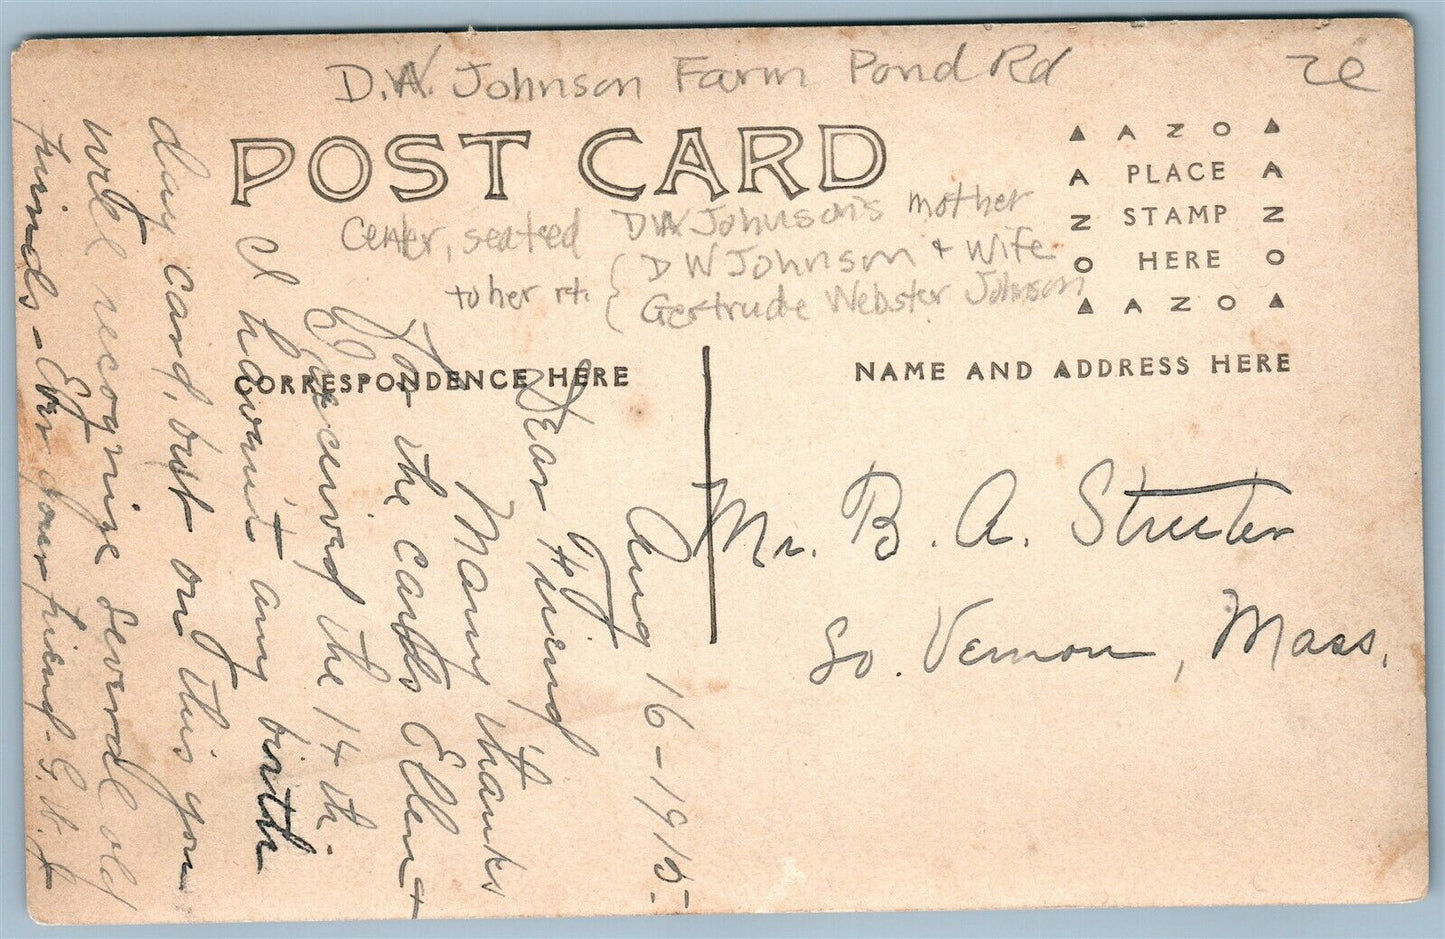 D.W. Johnson Farm Pond Rd
POST CARD
Center, seated DW Johnson's mother
to her rt. { DW Johnson + Wife
Gertrude Webster Johnson
AZO
PLACE
STAMP
HERE
AZO
CORRESPONDENCE HERE
NAME AND ADDRESS HERE
Aug 16-1915-
Dear Friend
Many thanks
for the cards Ellen +
I received the 14th.
I haven't any birth
day card, but on this you
will recognize several old
friends - Ever your friend - G. W. J
Mr. B. A. Streeter
So. Vernon, Mass.